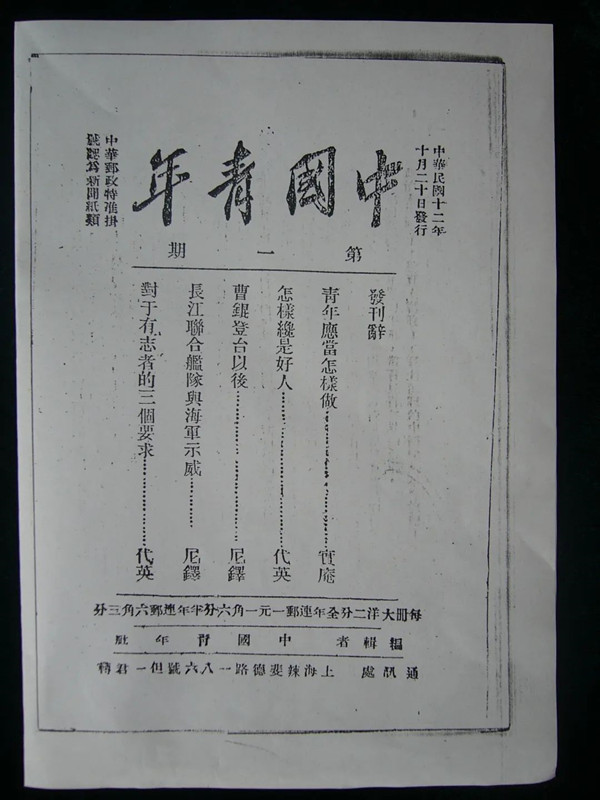 中華民國十二年
十月二十日發行
中國青年
第一期
中華郵政特准掛
號認爲新聞紙類
發刊辭
青年應當怎樣做……………………實庵
怎樣纔是好人……………………代英
曹錕登台以後……………………尼鐸
長江聯合艦隊與海軍示威…………尼鐸
對于有志者的三個要求……………代英
每冊大洋二分全年連郵一元一角六分半年連郵六角三分
編輯者 中國青年社
通訊處 上海辣斐德路一八六號但一君轉